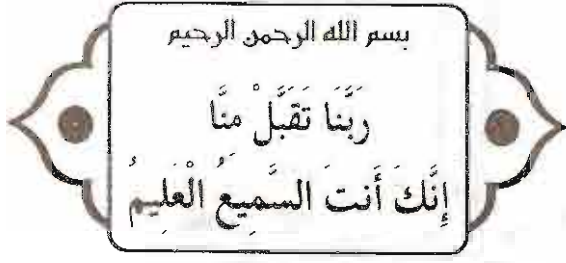 بسم الله الرحمن الرحيم
رَبَّنَا تَقَبَّلْ مِنَّا
إِنَّكَ أَنتَ السَّمِيعُ الْعَلِيمُ